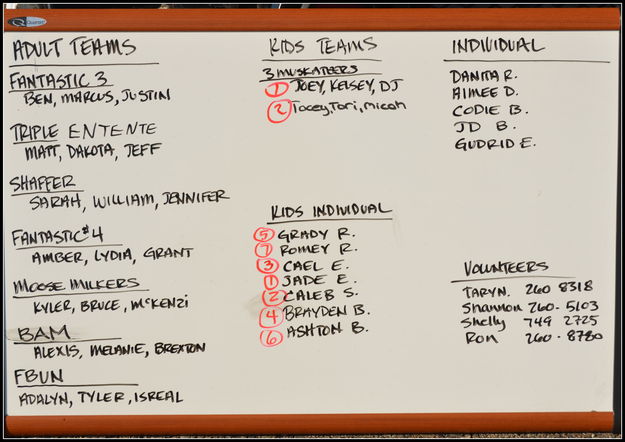 Quartet
ADULT TEAMS
FANTASTIC 3
BEN, MARCUS, JUSTIN
TRIPLE ENTENTE
MATT, DAKOTA, JEFF
SHAFFER
SARAH, WILLIAM, JENNIFER
FANTASTIC #4
AMBER, LYDIA, GRANT
MOOSE MILKERS
KYLER, BRUCE, McKENZI
BAM
ALEXIS, MELANIE, BREXTON
FBUN
ADALYN, TYLER, ISREAL
KIDS TEAMS
3 MUSKATEERS
1 JOEY, KELSEY, DJ
2 Tacey, Tori, Micah
KIDS INDIVIDUAL
5 GRADY R.
7 ROMEY R.
3 CAEL E.
1 JADE E.
2 CALEB S.
4 BRAYDEN B.
6 ASHTON B.
INDIVIDUAL
DANITA R.
AIMEE D.
CODIE B.
JD B.
GUDRID E.
VOLUNTEERS
TARYN. 260 8318
Shannon 260-5103
Shelly 749 2725
Ron 260-8780